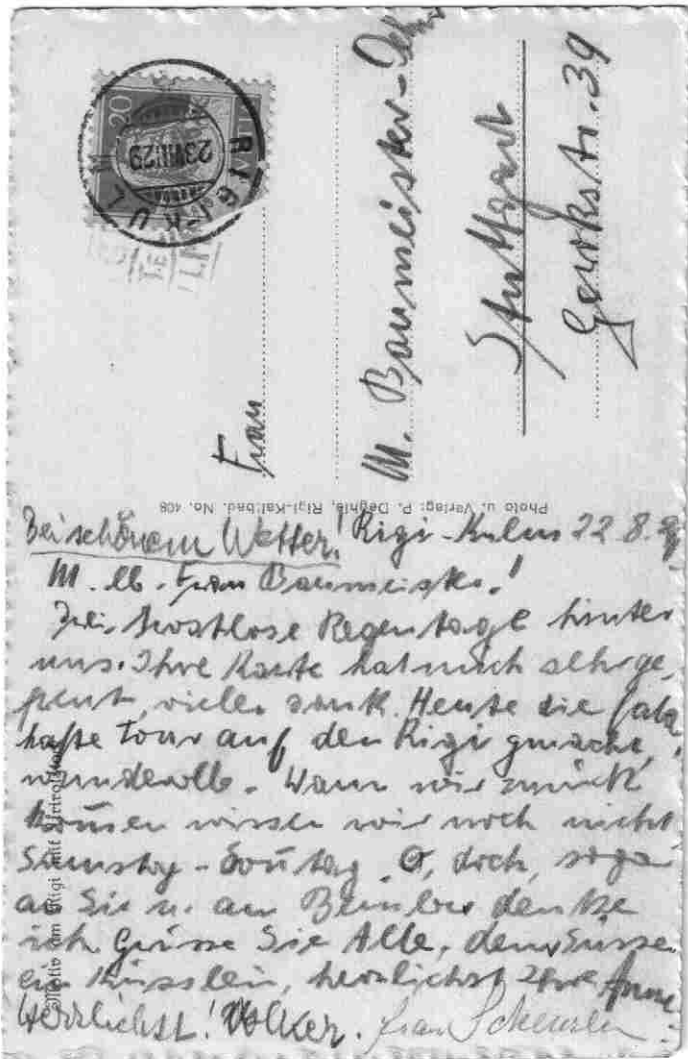 20
RIGI-KULM
23 VIII 29
Frau
M. Baumeister-
Stuttgart
Gerokstr. 39
Photo u. Verlag: P. Deghle, Rigi-Kaltbad. No. 408
Bei schönem Wetter! Rigi-Kulm 22.8.
M. lb. Frau Baumeister!
Zwei trostlose Regentage hinter
uns. Ihre Karte hat mich sehr ge-
freut, vielen Dank. Heute die fabel-
hafte Tour auf den Rigi gemacht,
wundervoll. Wann wir zurück
kommen wissen wir noch nicht
Samstag - Sonntag. O, doch, sogar
an Sie u. an denke
ich. Grüsse Sie Alle, dem Süssen
ein Küsslein, herzlichst Ihre
Herzlichst! Volker. Frau Scheuerlen
Motiv am Rigi mit